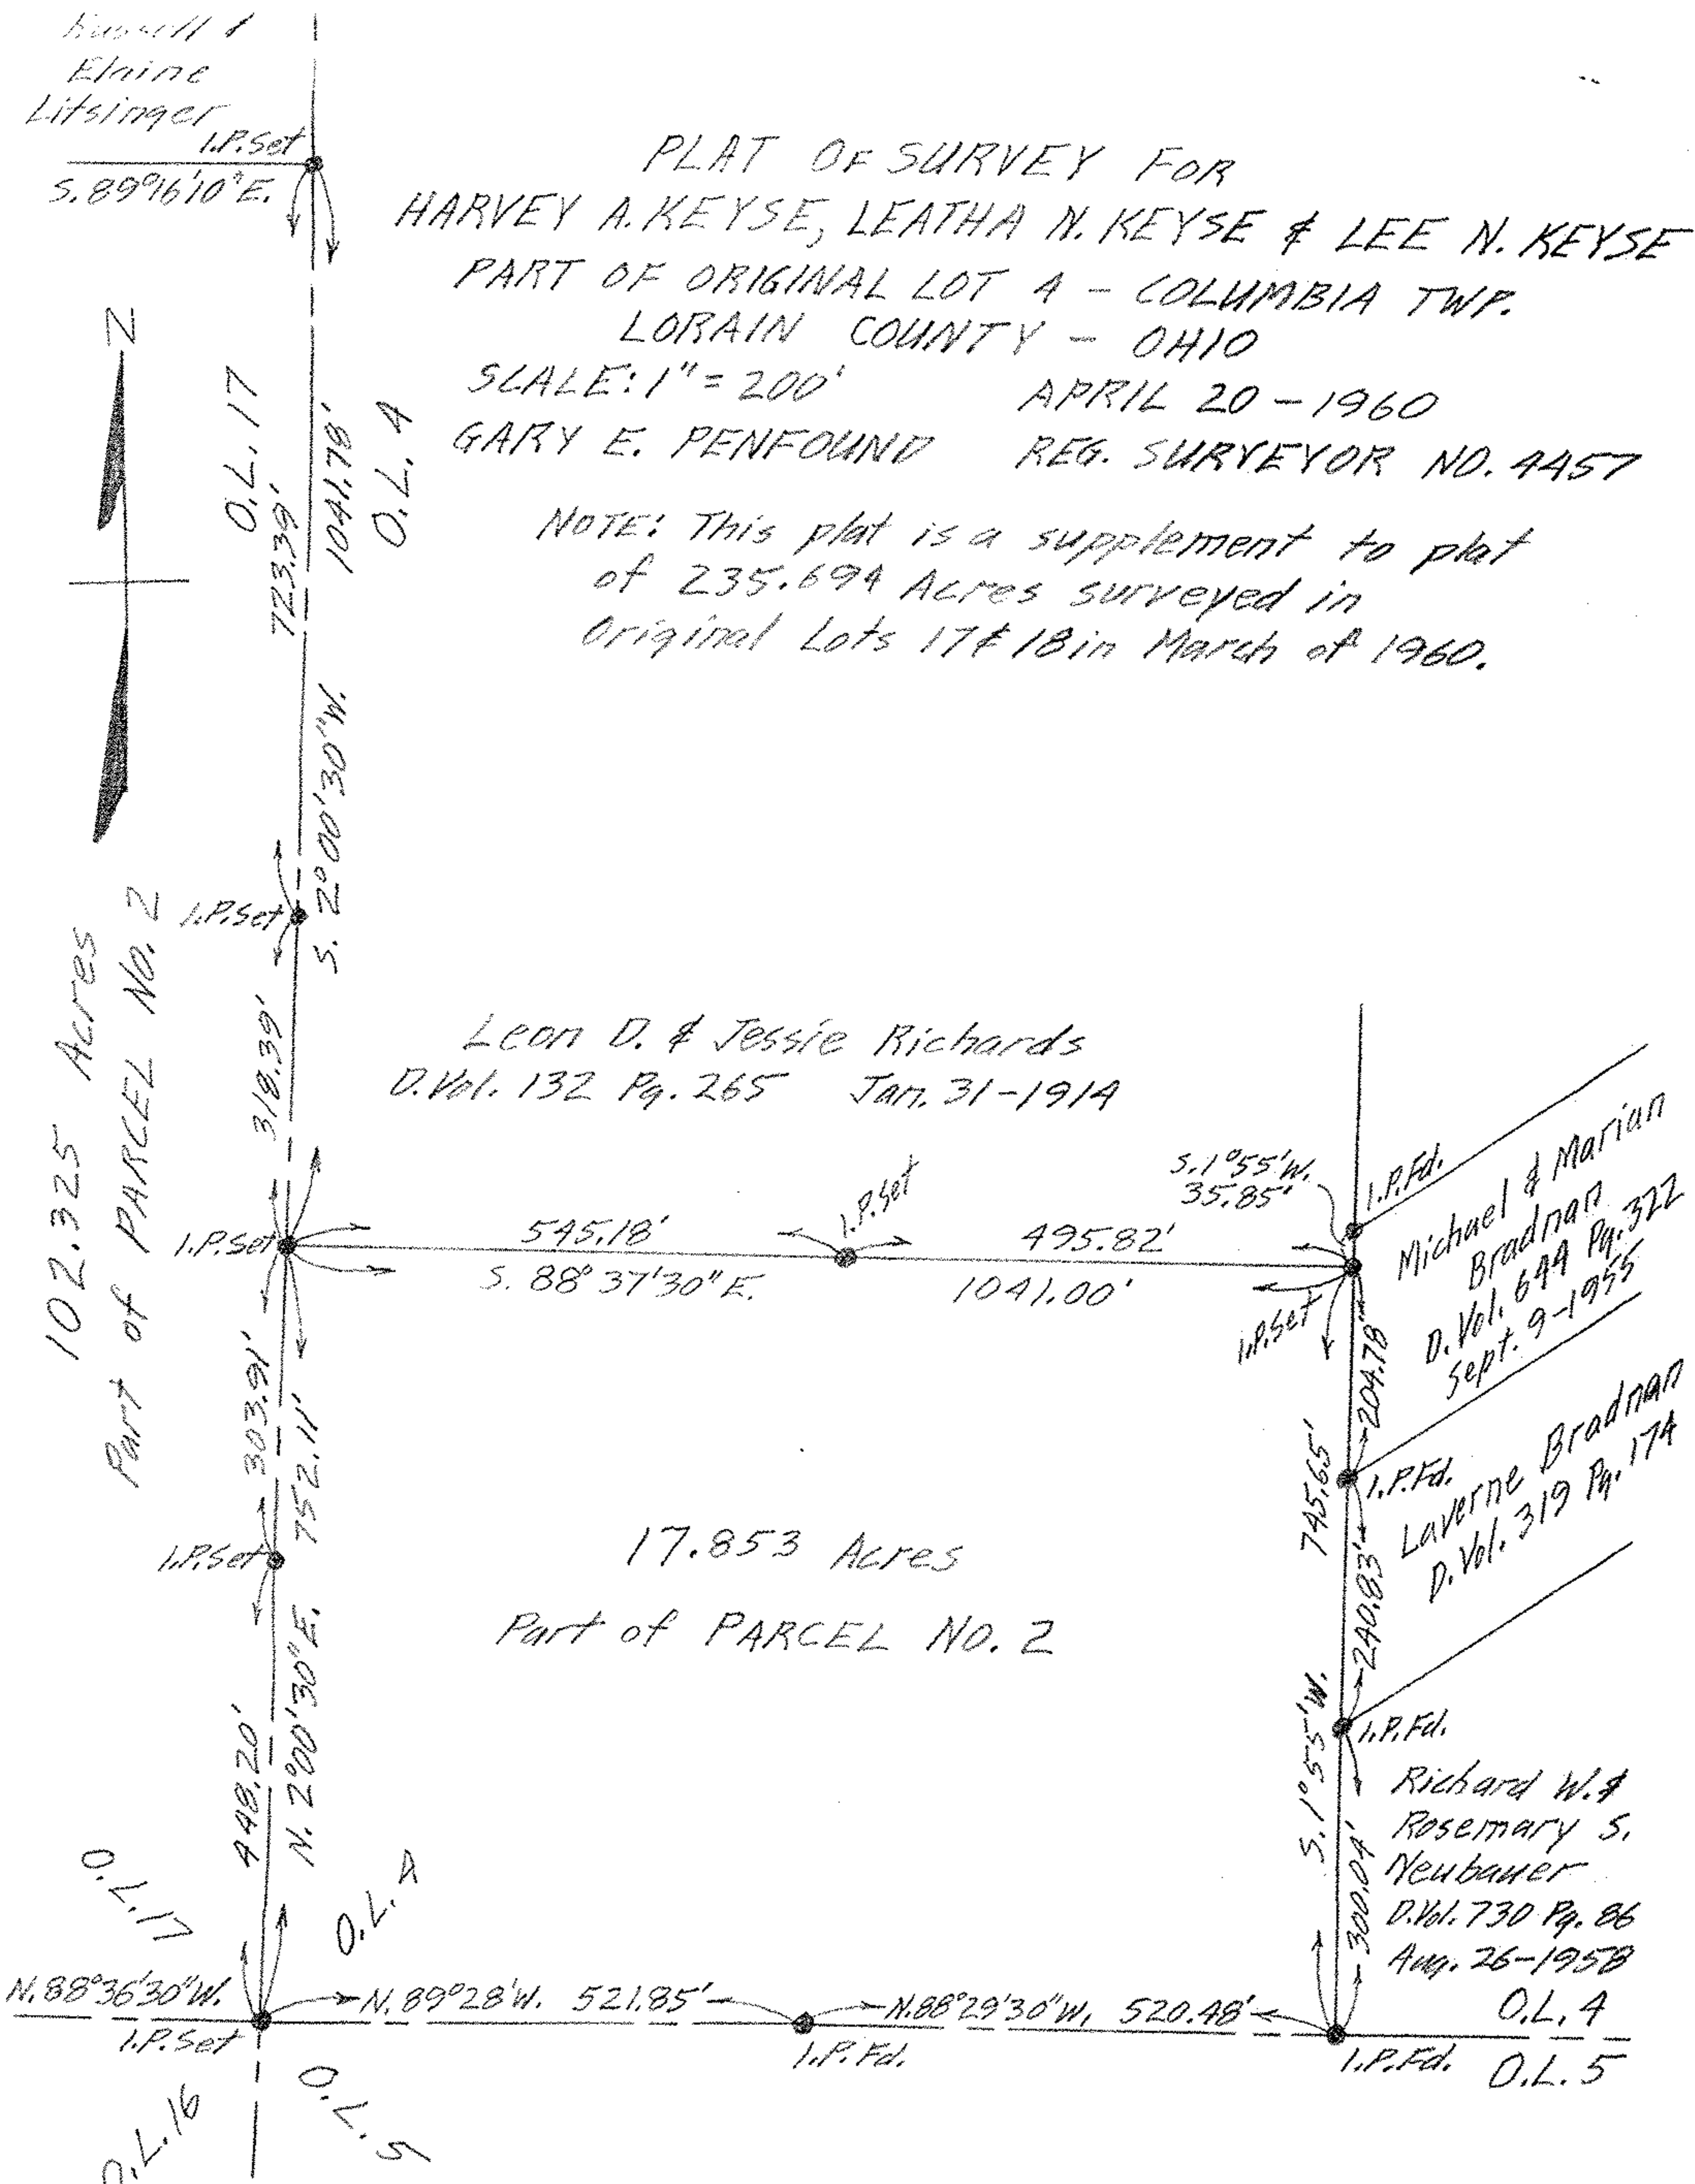 Russell &
Elaine
Litsinger
I.P.Set
S.89°16'10"E.
PLAT OF SURVEY FOR
HARVEY A. KEYSE, LEATHA N. KEYSE & LEE N. KEYSE
PART OF ORIGINAL LOT 4 - COLUMBIA TWP.
LORAIN COUNTY - OHIO
SCALE: 1" = 200' APRIL 20 - 1960
GARY E. PENFOUND REG. SURVEYOR NO. 4457
NOTE: This plat is a supplement to plat
of 235.694 Acres surveyed in
Original Lots 17 & 18 in March of 1960.
N
O.L. 17
723.39'
1041.78'
O.L. 4
S. 2°00'30"W.
I.P.Set
102.325 Acres
Part of PARCEL No. 2
318.39'
Leon D. & Jessie Richards
D.Vol. 132 Pg. 265 Jan. 31-1914
I.P.Set
545.18'
I.P.Set
495.82'
S. 88°37'30"E.
1041.00'
S.1°55'W.
35.85'
I.P.Fd.
I.P.Set
Michael & Marian
Bradnan
D.Vol. 644 Pg. 322
Sept. 9-1955
204.78'
745.65'
I.P.Fd.
Laverne Bradnan
D.Vol. 319 Pg. 174
303.91'
752.11'
I.P.Set
17.853 Acres
Part of PARCEL NO. 2
240.83'
S. 1°55'W.
I.P.Fd.
448.20'
N. 2°00'30"E.
Richard W. &
Rosemary S.
Neubauer
D.Vol. 730 Pg. 86
Aug. 26-1958
300.04'
O.L. 17
O.L. 4
N.88°36'30"W.
I.P.Set
N.89°28'W. 521.85'
I.P.Fd.
N.88°29'30"W. 520.48'
I.P.Fd.
O.L. 4
O.L. 5
O.L. 16
O.L. 5